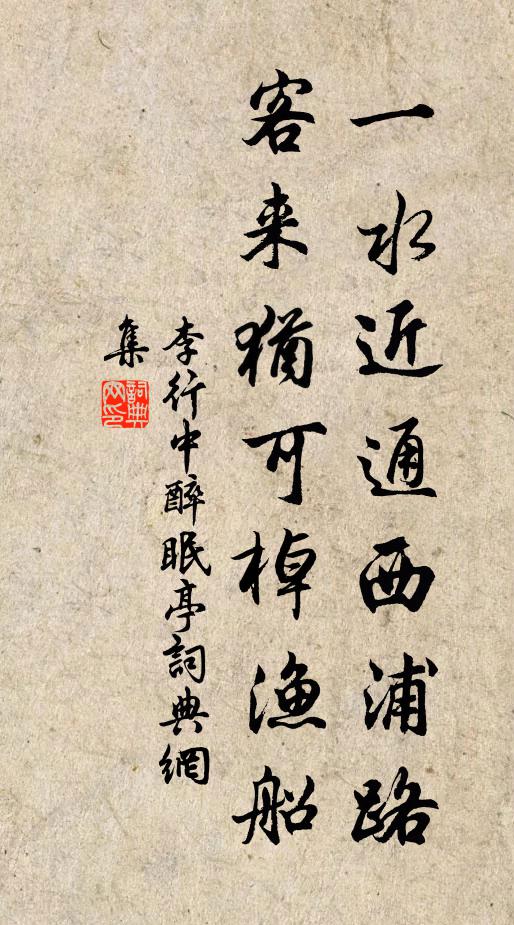 一水近通西浦路
客来猶可棹漁船
李行中醉眠亭詞典網
集
詞典
网印